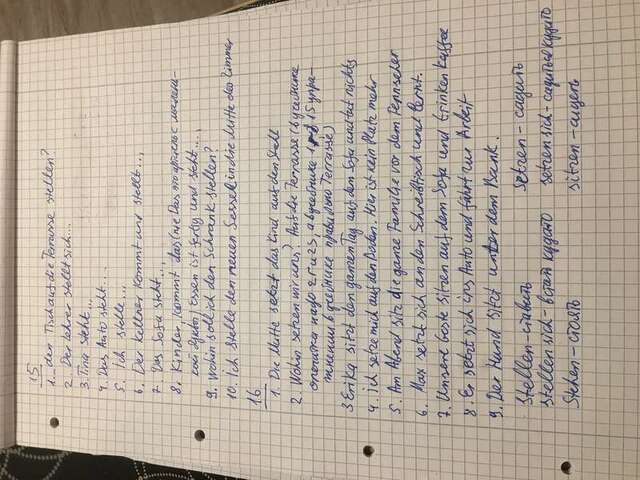 15
1. den Tisch auf die Terrasse stellen?
2. Der Lehrer stellt sich...
3. Tina steht...
4. Das Auto steht...
5. Ich stelle...
6. Der Kellner kommt und stellt...
7. Das Sofa steht...
8. Kinder, kommt das (не Das это артикль с малень-
кой буквы) Essen ist fertig und steht...
9. Wohin soll ich den Schrank stellen?
10. Ich stelle den neuen Sessel in die Mitte des Zimmer
16
1. Die Mutte setzt das Kind auf den Stuhl
2. Wohin setzen wir uns? Auf die Terrasse (в учебнике
опечатка надо 2 r и 2 s, а в учебнике 1 r 15 упра-
жнении в учебнике правильно Terrasse)
3 Erika sitzt den ganzen Tag auf dem Sofa und tut nichts
4. ich setze mich auf den Boden. Hier ist kein Platz mehr
5. Am Abend sitz die ganze Familie vor dem Fernseher
6. Max setzt sich an den Schreibtisch und lernt.
7. Unsere Gäste sitzen auf dem Sofa und trinken Kaffee
8. Er setzt sich ins Auto und fährt zur Arbeit
9. Der Hund sitzt unter dem Bank.
Stellen - ставить setzen - садить
stellen sich - встать куда то setzen sich - садиться куда то
Stehen - стоять sitzen - сидеть